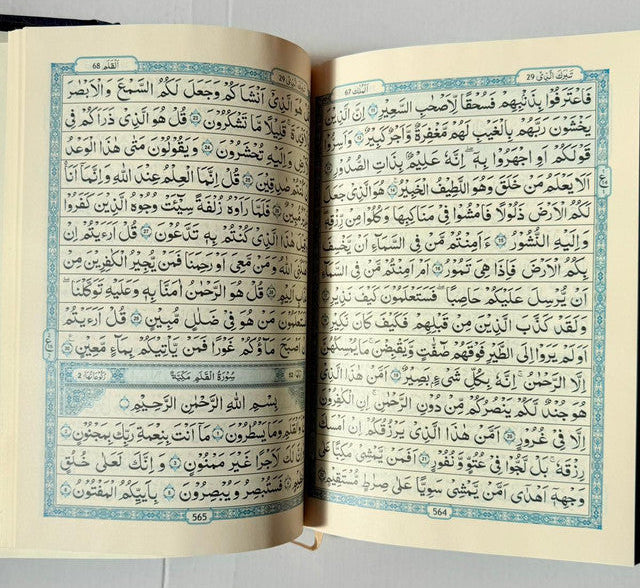 تَبٰرَكَ الَّذِىۡ 29
اَلۡمُلۡك 67
فَاعۡتَرَفُوۡا بِذَنۡۢبِهِمۡ‌ۚ فَسُحۡقًا لِّاَصۡحٰبِ السَّعِيۡرِ ۝۱۱ اِنَّ الَّذِيۡنَ
يَخۡشَوۡنَ رَبَّهُمۡ بِالۡغَيۡبِ لَهُمۡ مَّغۡفِرَةٌ وَّاَجۡرٌ كَبِيۡرٌ ۝۱۲ وَاَسِرُّوۡا
قَوۡلَكُمۡ اَوِ اجۡهَرُوۡا بِهٖؕ اِنَّهٗ عَلِيۡمٌۢ بِذَاتِ الصُّدُوۡرِ ۝۱۳
اَلَا يَعۡلَمُ مَنۡ خَلَقَؕ وَهُوَ اللَّطِيۡفُ الۡخَبِيۡرُ ۝۱۴ هُوَ الَّذِىۡ جَعَلَ
لَكُمُ الۡاَرۡضَ ذَلُوۡلًا فَامۡشُوۡا فِىۡ مَنَاكِبِهَا وَكُلُوۡا مِنۡ رِّزۡقِهٖؕ
وَاِلَيۡهِ النُّشُوۡرُ ۝۱۵ ءَاَمِنۡتُمۡ مَّنۡ فِى السَّمَآءِ اَنۡ يَّخۡسِفَ
بِكُمُ الۡاَرۡضَ فَاِذَا هِىَ تَمُوۡرُ ۝۱۶ اَمۡ اَمِنۡتُمۡ مَّنۡ فِى السَّمَآءِ
اَنۡ يُّرۡسِلَ عَلَيۡكُمۡ حَاصِبًاؕ فَسَتَعۡلَمُوۡنَ كَيۡفَ نَذِيۡرِ ۝۱۷
وَلَقَدۡ كَذَّبَ الَّذِيۡنَ مِنۡ قَبۡلِهِمۡ فَكَيۡفَ كَانَ نَكِيۡرِ ۝۱۸
اَوَلَمۡ يَرَوۡا اِلَى الطَّيۡرِ فَوۡقَهُمۡ صٰٓفّٰتٍ وَّيَقۡبِضۡنَؔؕ مَا يُمۡسِكُهُنَّ
اِلَّا الرَّحۡمٰنُؕ اِنَّهٗ بِكُلِّ شَىۡءٍۢ بَصِيۡرٌ ۝۱۹ اَمَّنۡ هٰذَا الَّذِىۡ
هُوَ جُنۡدٌ لَّكُمۡ يَنۡصُرُكُمۡ مِّنۡ دُوۡنِ الرَّحۡمٰنِؕ اِنِ الۡكٰفِرُوۡنَ
اِلَّا فِىۡ غُرُوۡرٍ ۝۲۰ اَمَّنۡ هٰذَا الَّذِىۡ يَرۡزُقُكُمۡ اِنۡ اَمۡسَكَ
رِزۡقَهٗ‌ۚ بَلۡ لَّجُّوۡا فِىۡ عُتُوٍّ وَّنُفُوۡرٍ ۝۲۱ اَفَمَنۡ يَّمۡشِىۡ مُكِبًّا عَلٰى
وَجۡهِهٖۤ اَهۡدٰٓى اَمَّنۡ يَّمۡشِىۡ سَوِيًّا عَلٰى صِرَاطٍ مُّسۡتَقِيۡمٍ ۝۲۲
564
تَبٰرَكَ الَّذِىۡ 29
اَلۡقَلَم 68
هُوَ الَّذِىۡۤ اَنۡشَاَكُمۡ وَجَعَلَ لَكُمُ السَّمۡعَ وَالۡاَبۡصٰرَ
قَلِيۡلًا مَّا تَشۡكُرُوۡنَ ۝۲۳ قُلۡ هُوَ الَّذِىۡ ذَرَاَكُمۡ فِى
وَاِلَيۡهِ تُحۡشَرُوۡنَ ۝۲۴ وَيَقُوۡلُوۡنَ مَتٰى هٰذَا الۡوَعۡدُ
صٰدِقِيۡنَ ۝۲۵ قُلۡ اِنَّمَا الۡعِلۡمُ عِنۡدَ اللّٰهِ وَاِنَّمَاۤ اَنَا
مُّبِيۡنٌ ۝۲۶ فَلَمَّا رَاَوۡهُ زُلۡفَةً سِيۡٓـَٔتۡ وُجُوۡهُ الَّذِيۡنَ كَفَرُوۡا
هٰذَا الَّذِىۡ كُنۡتُمۡ بِهٖ تَدَّعُوۡنَ ۝۲۷ قُلۡ اَرَءَيۡتُمۡ اِنۡ
اللّٰهُ وَمَنۡ مَّعِىَ اَوۡ رَحِمَنَاۙ فَمَنۡ يُّجِيۡرُ الۡكٰفِرِيۡنَ مِنۡ
اَلِيۡمٍ ۝۲۸ قُلۡ هُوَ الرَّحۡمٰنُ اٰمَنَّا بِهٖ وَعَلَيۡهِ تَوَكَّلۡنَا‌ۚ
مَنۡ هُوَ فِىۡ ضَلٰلٍ مُّبِيۡنٍ ۝۲۹ قُلۡ اَرَءَيۡتُمۡ
اَصۡبَحَ مَآؤُكُمۡ غَوۡرًا فَمَنۡ يَّاۡتِيۡكُمۡ بِمَآءٍ مَّعِيۡنٍ ۝۳۰
سُوۡرَةُ الۡقَلَمِ مَكِّيَّةٌ
رُكُوۡعَاتُهَا 2
بِسۡمِ اللّٰهِ الرَّحۡمٰنِ الرَّحِيۡمِ
وَمَا يَسۡطُرُوۡنَۙ ۝۱ مَاۤ اَنۡتَ بِنِعۡمَةِ رَبِّكَ بِمَجۡنُوۡنٍ‌ۚ ۝۲
لَكَ لَاَجۡرًا غَيۡرَ مَمۡنُوۡنٍ‌ۚ ۝۳ وَاِنَّكَ لَعَلٰى خُلُقٍ
فَسَتُبۡصِرُ وَيُبۡصِرُوۡنَۙ ۝۵ بِاَيِّٮكُمُ الۡمَفۡتُوۡنُ ۝۶
565